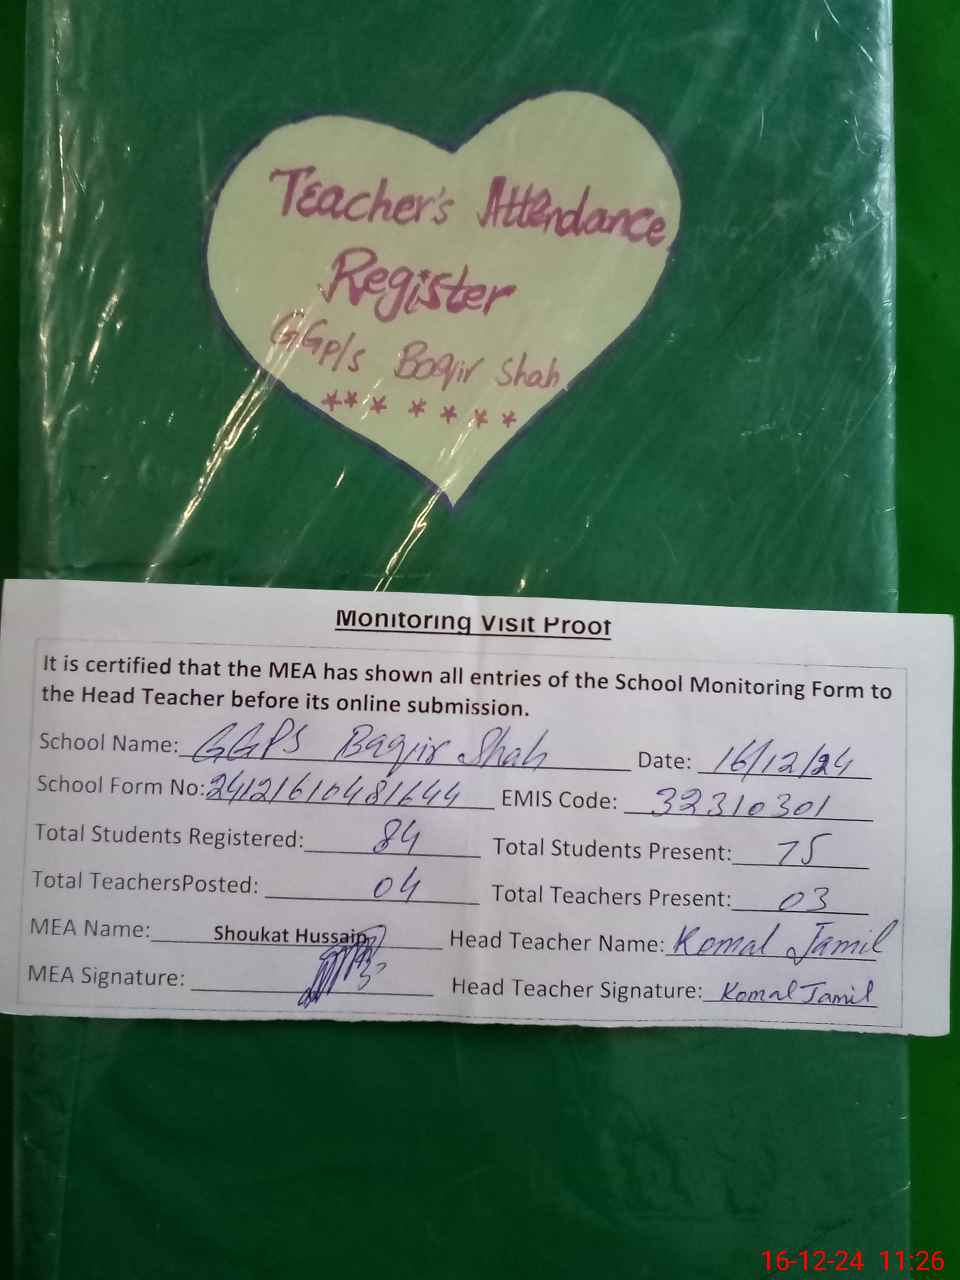 Teacher's Attendance
Register
GGp/s Baqir Shah
Monitoring Visit Proof
It is certified that the MEA has shown all entries of the School Monitoring Form to
the Head Teacher before its online submission.
School Name: GGPS Baqir Shah Date: 16/12/24
School Form No: 24121610481644 EMIS Code: 32310301
Total Students Registered: 84 Total Students Present: 75
Total TeachersPosted: 04 Total Teachers Present: 03
MEA Name: Shoukat Hussain Head Teacher Name: Komal Jamil
MEA Signature: Head Teacher Signature: Komal Jamil
16-12-24 11:26